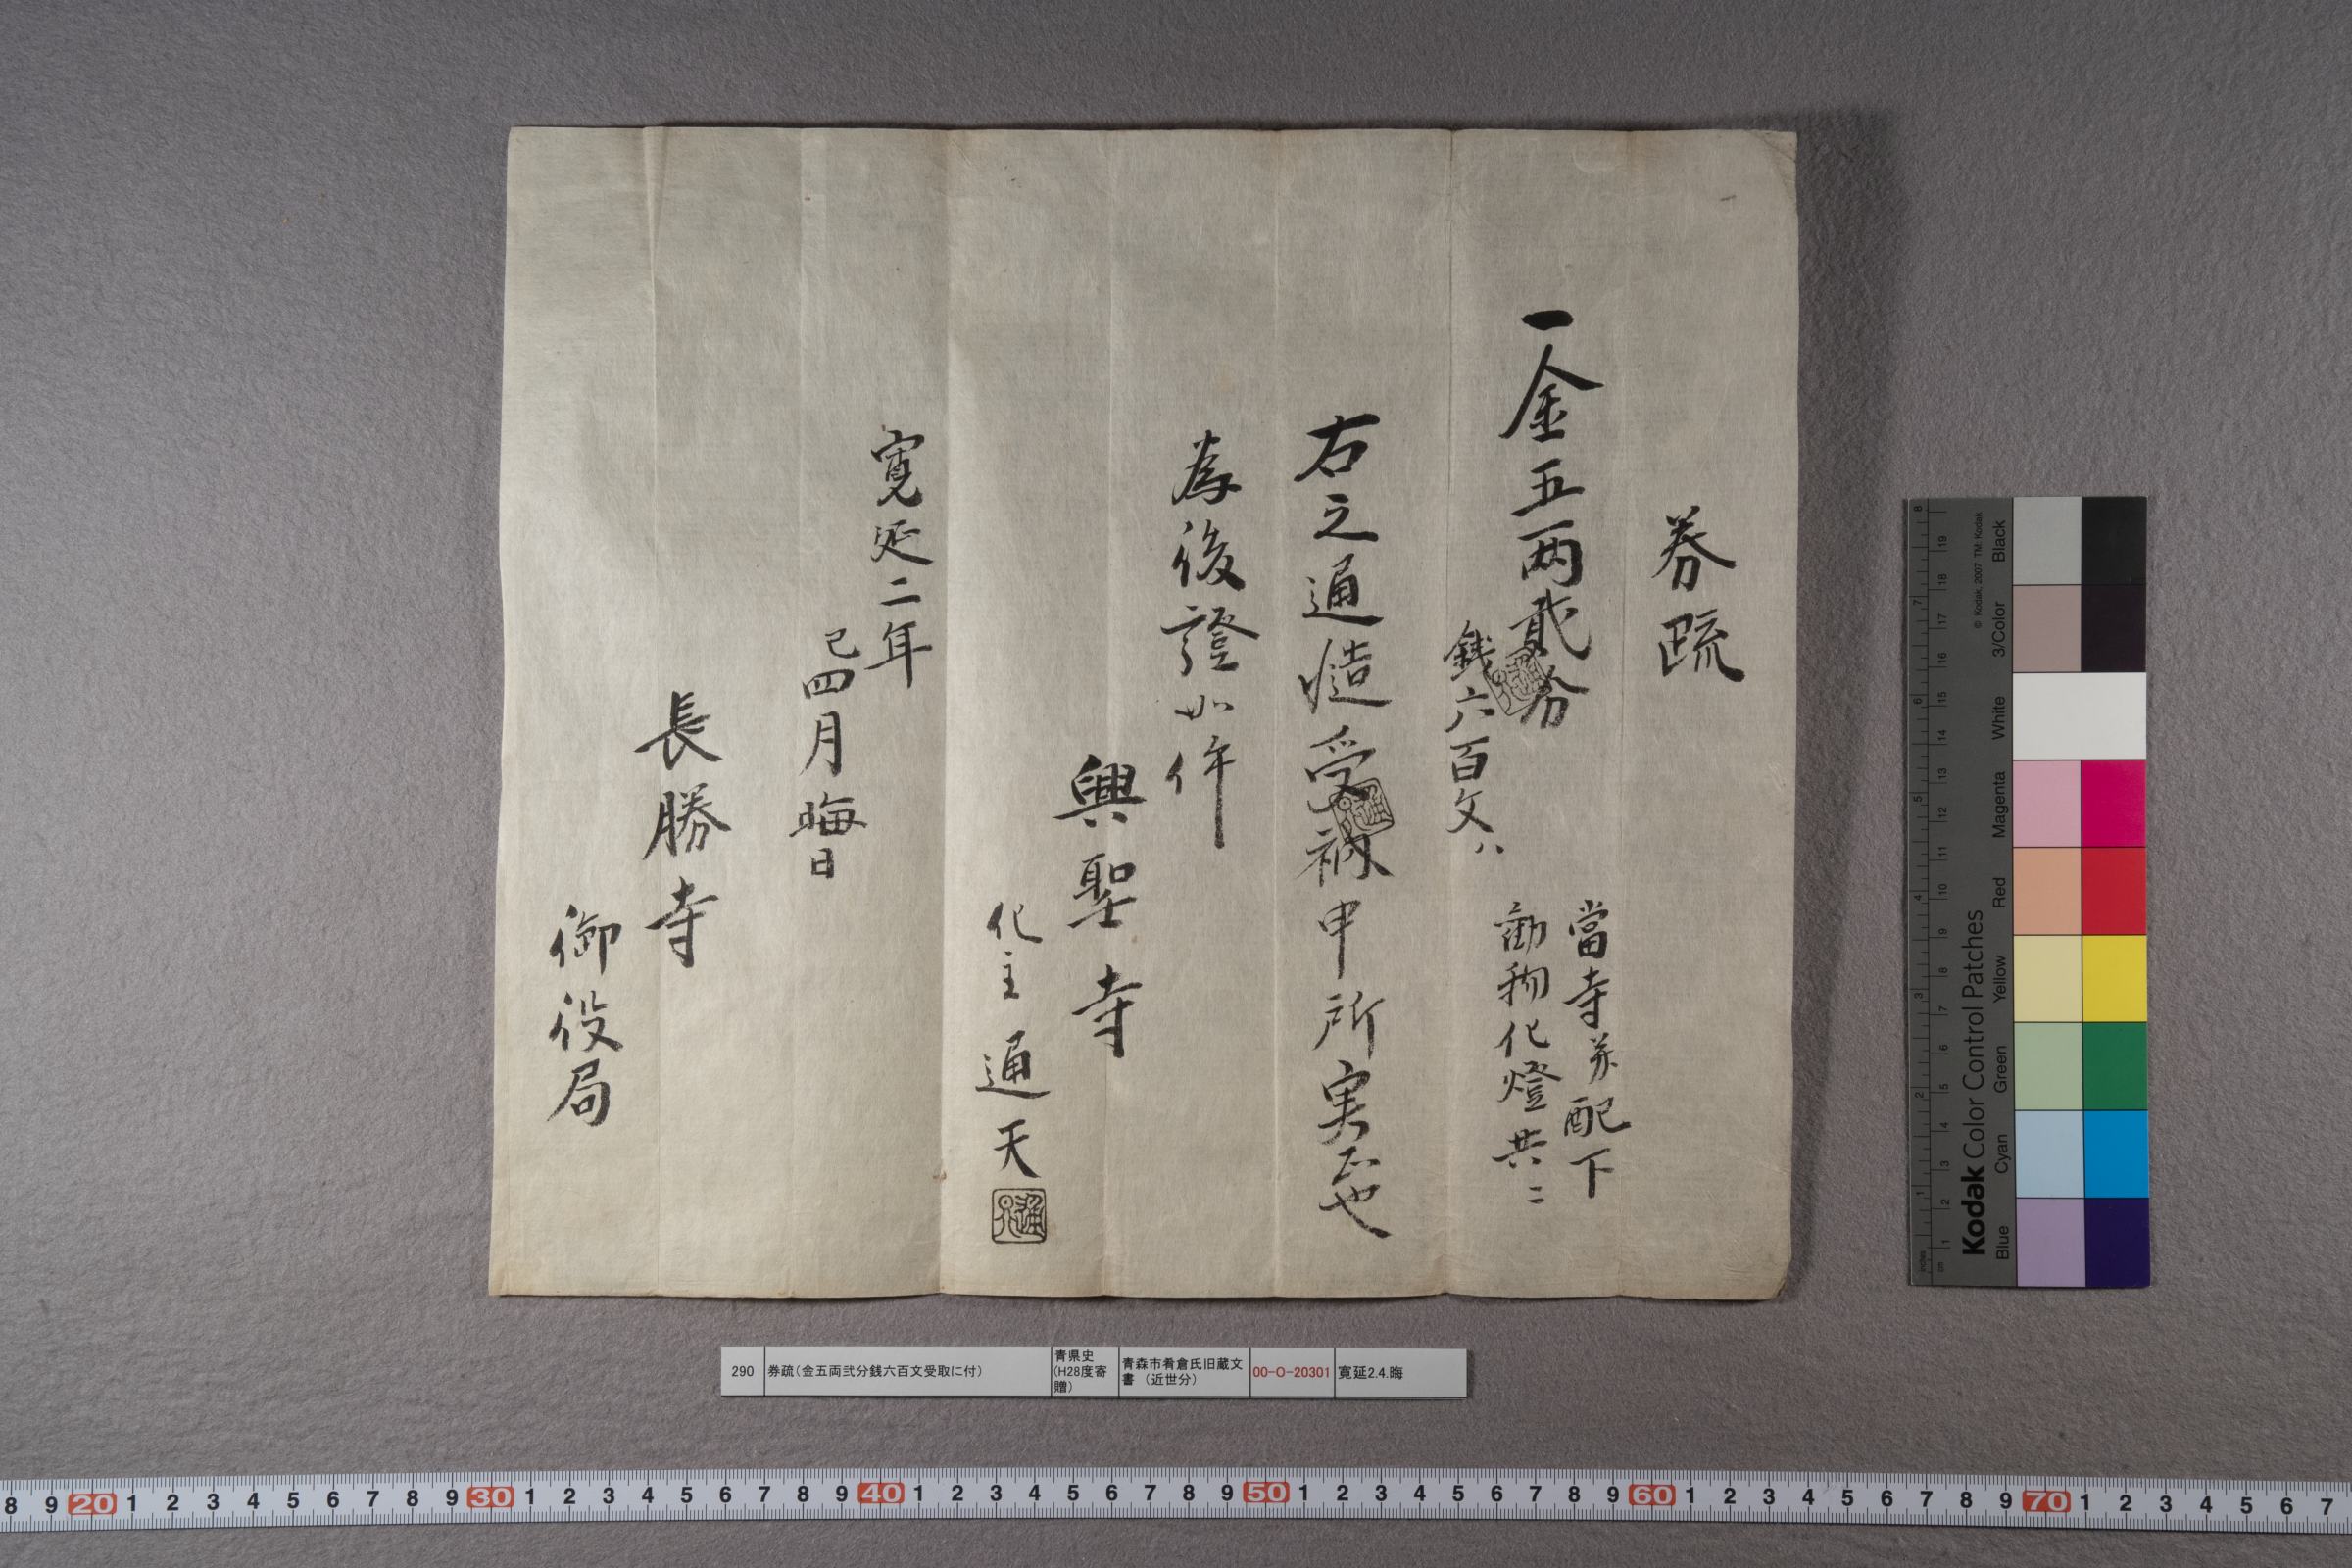 券疏
一金五両貳分
當寺并配下
勧物化燈共ニ
銭六百文ハ
右之通慥受納申所実正也
為後證如件
興聖寺
化主通天
寛延二年
巳四月晦日
長勝寺
御役局
290 券疏(金五両弐分銭六百文受取に付) 青県史(H28度寄贈) 青森市肴倉氏旧蔵文書 (近世分) 00-O-20301 寛延2.4.晦
Kodak Color Control Patches
© Kodak, 2007 TM: Kodak
Blue Cyan Green Yellow Red Magenta White 3/Color Black
inches 1 2 3 4 5 6 7 8
cm 1 2 3 4 5 6 7 8 9 10 11 12 13 14 15 16 17 18 19
8 9 20 1 2 3 4 5 6 7 8 9 30 1 2 3 4 5 6 7 8 9 40 1 2 3 4 5 6 7 8 9 50 1 2 3 4 5 6 7 8 9 60 1 2 3 4 5 6 7 8 9 70 1 2 3 4 5 6 7